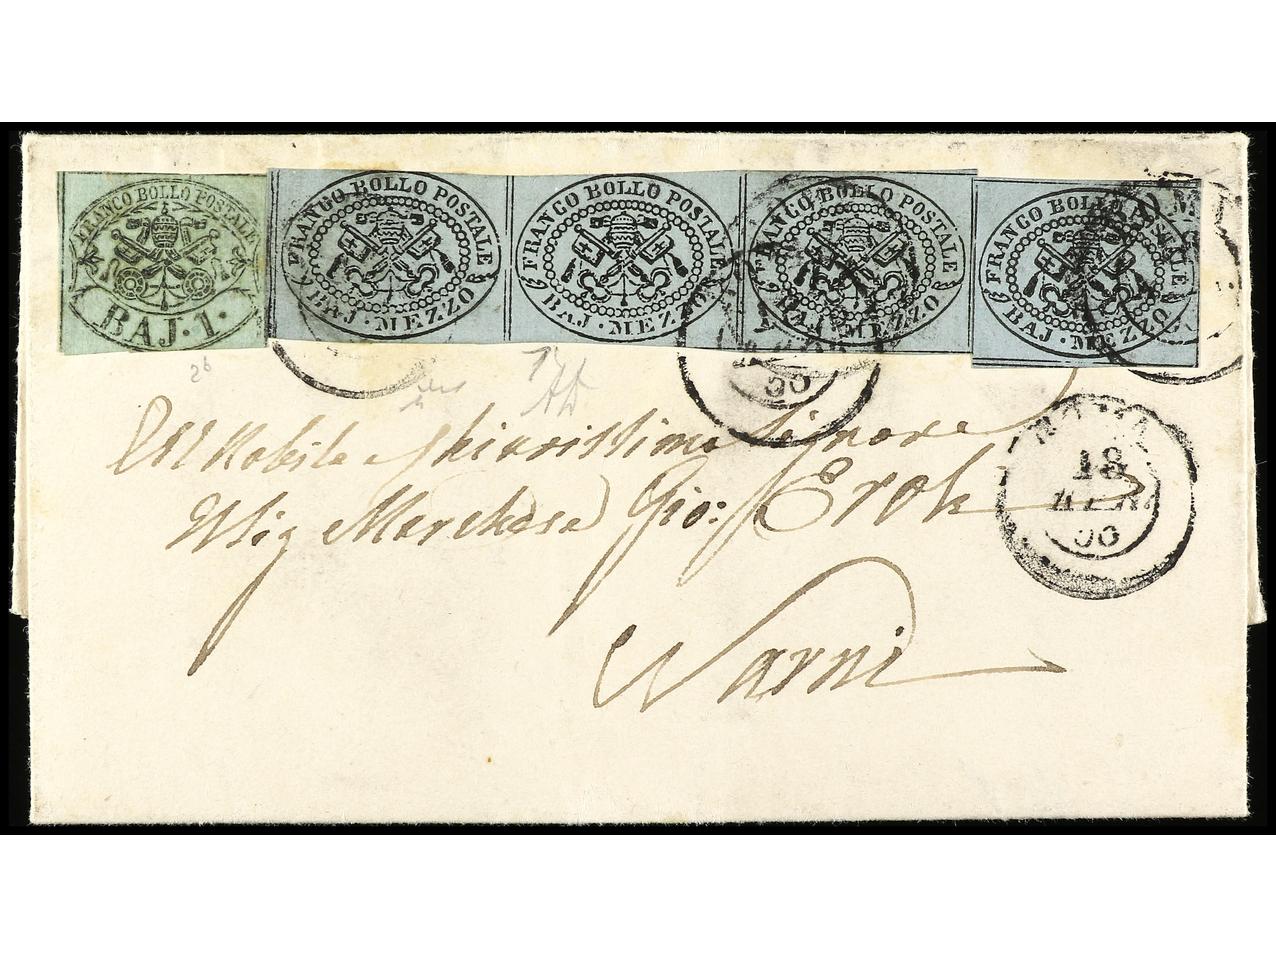 FRANCO BOLLO POSTALE
BAJ. 1.
FRANCO BOLLO POSTALE
BAJ. MEZZO
FRANCO BOLLO POSTALE
BAJ. MEZZO
FRANCO BOLLO POSTALE
BAJ. MEZZO
FRANCO BOLLO POSTALE
BAJ. MEZZO
ROMA
18
Nobile Signore
Marchese Gio: Eroli
Narni